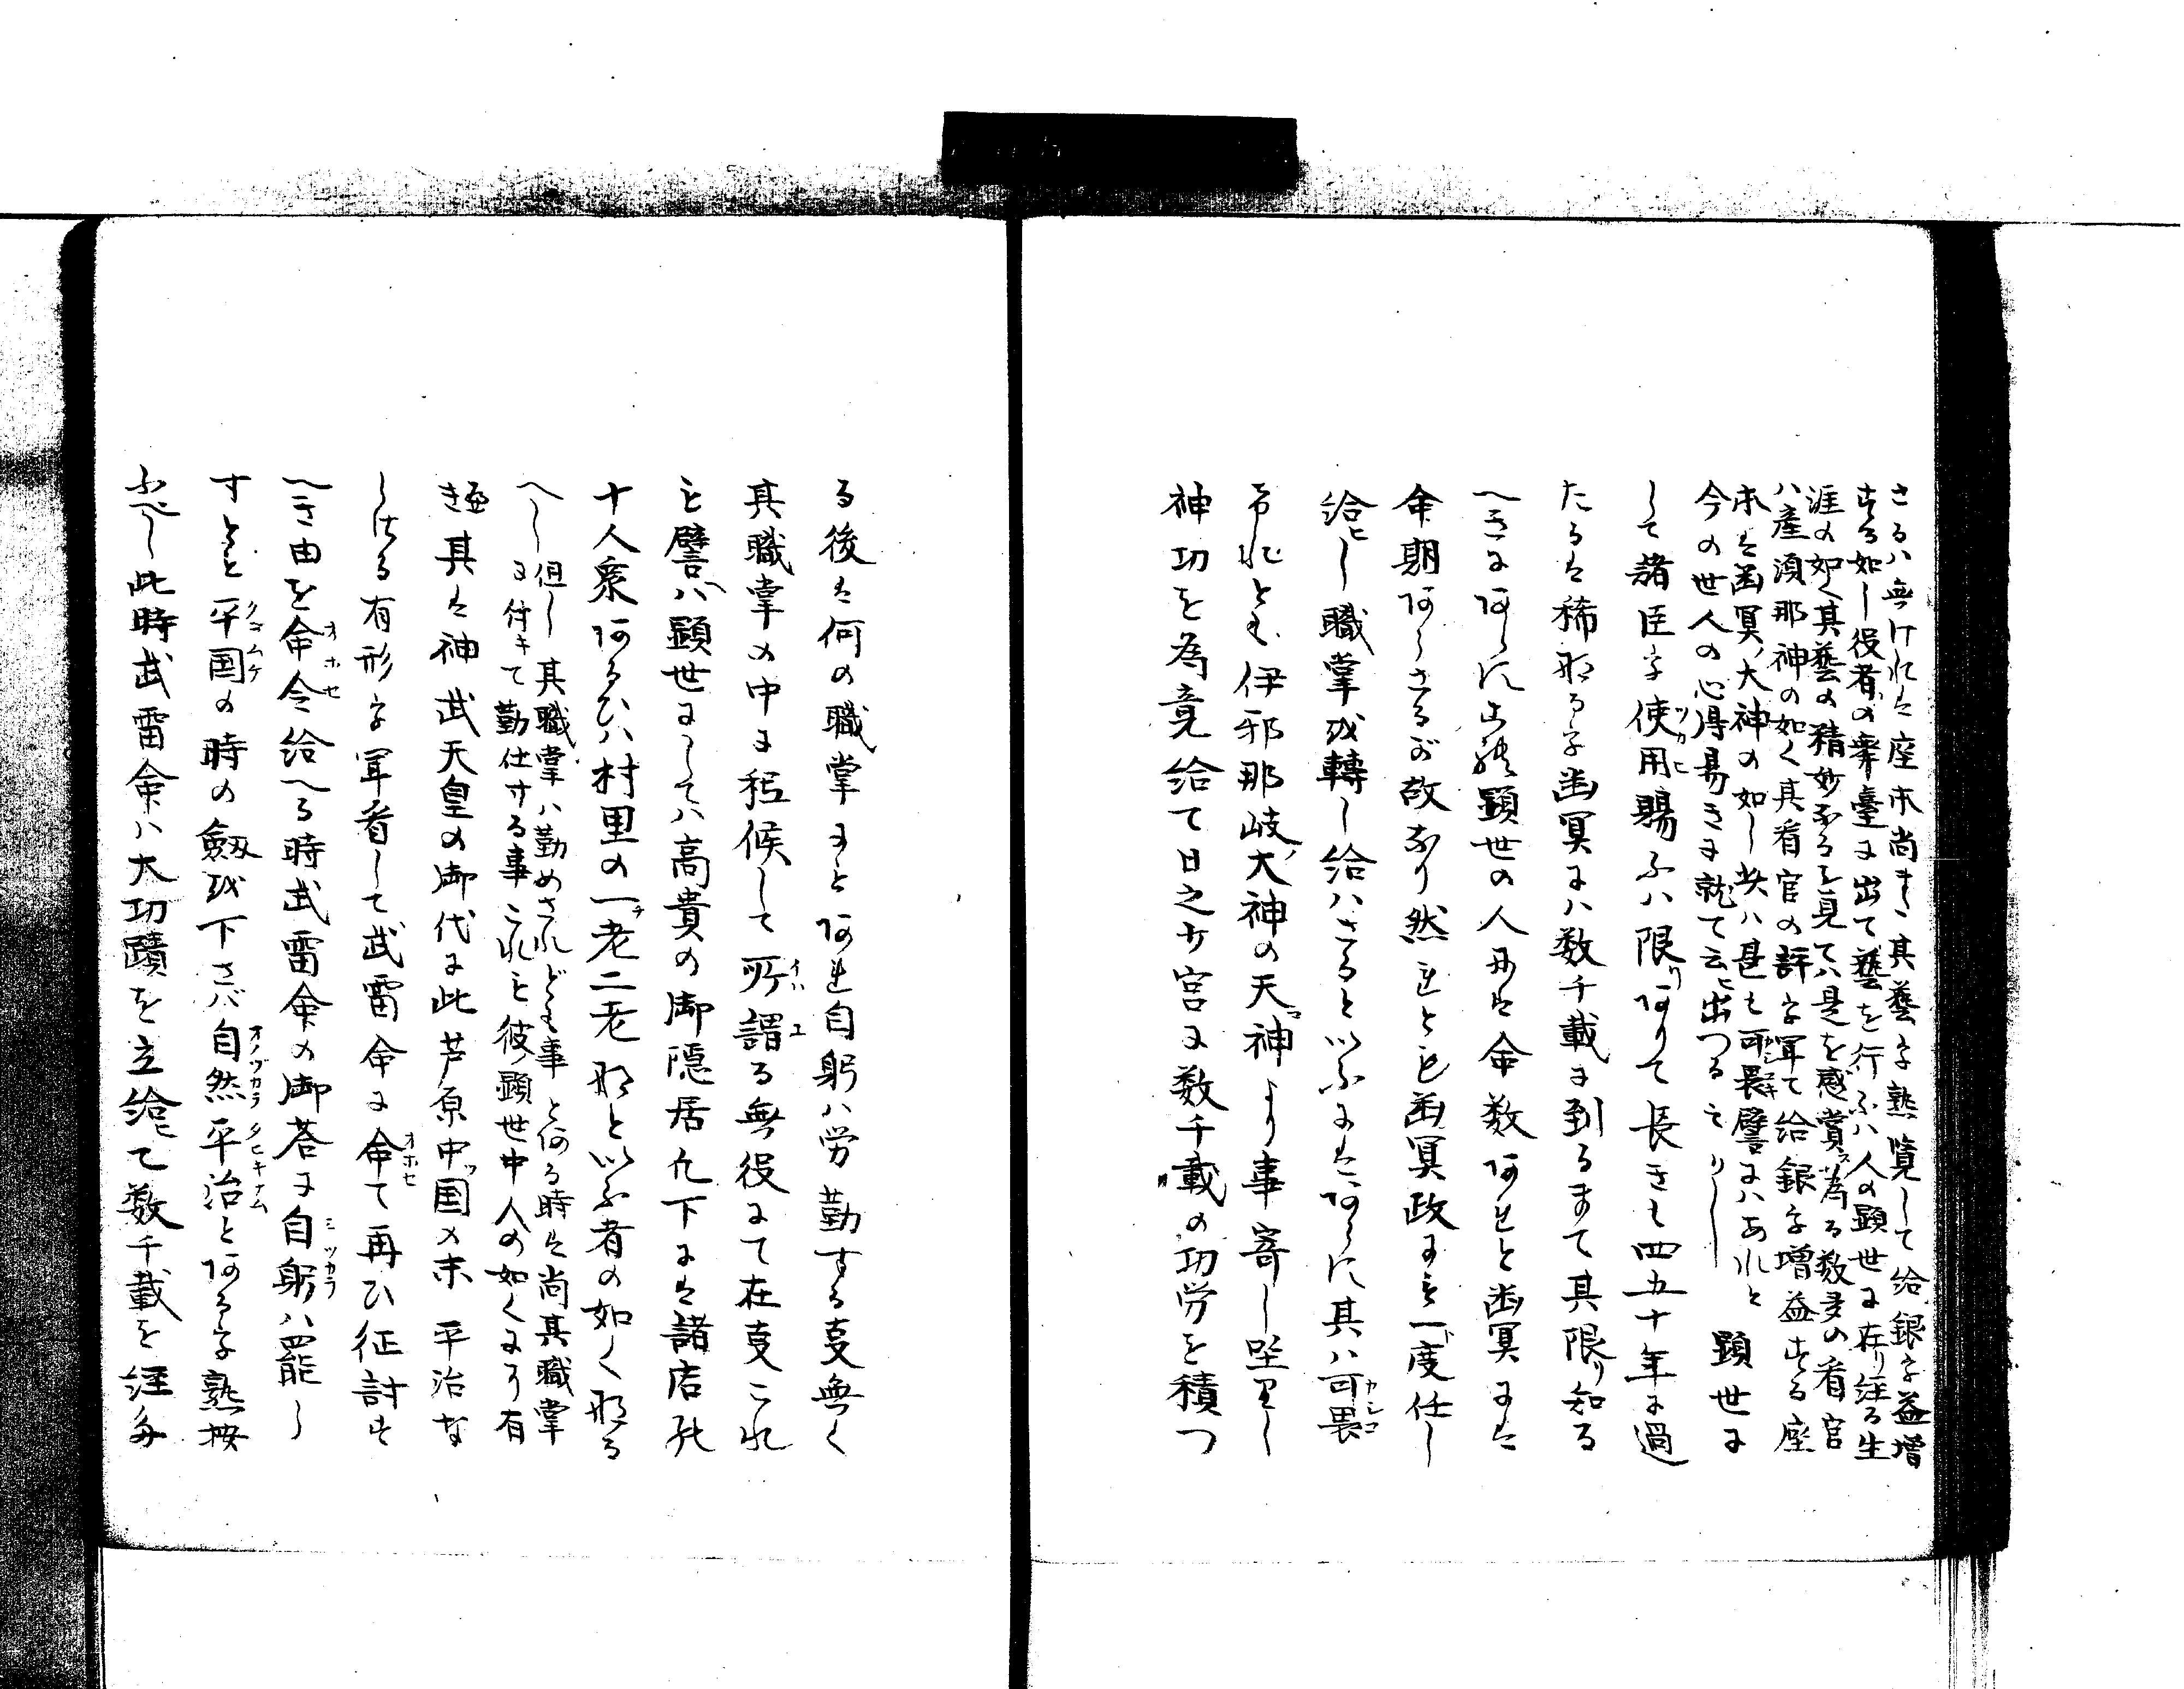 さるハ無けれは座本尚また其藝を熟覧して給銀を益増
する如し役者の舞臺に出て藝を行ふハ人の顕世に在り経る生
涯の如く其藝の精妙なるを見てハ是を感賞為る数多の看官
ハ産須那神の如く其看官の評を聞て給銀を増益する座
本は幽冥大神の如し此ハ甚も可畏譬にハあれと
今の世人の心得易きに就て云ヒ出つるそかし
顕世に
して諸臣を使用賜ふハ限りありて長きも四五十年に過
たるは稀なるを幽冥にハ数千載に到るまて其限リ知る
へきにあらす此顕世の人には命数あれと幽冥には
命期あらさるが故なり然れとも幽冥政にも一度任し
給ヒし職掌を轉し給ハさると以ふにはあらす其ハ可畏
けれとも伊邪那岐大神の天ツ神より事寄し坐りし
神功を為竟給て日之少宮に数千載の功労を積つ
る後は何の職掌まとあれ自躬ハ労勤する事無く
其職掌の中に祗候して所謂る無役にて在事これ
を譬ヘハ顕世にしてハ高貴の御隠居凡下には諸店死
十人衆あるひハ村里の一老二老なと以ふ者の如くなる
へし但し其職掌ハ勤めされども事と有る時は尚其職掌
に付キて勤仕する事これを彼顕世中人の如くにて有
き其は神武天皇の御代に此芦原中ツ国の未平治な
しける有形を聞看して武雷命に命て再ひ征討す
へき由を命令給へる時武雷命の御荅に自躬ハ罷し
すとも平国の時の劔を下さバ自然平治とあるを熟按
ふへし此時武雷命ハ大功蹟を立給ヒて数千載を経た